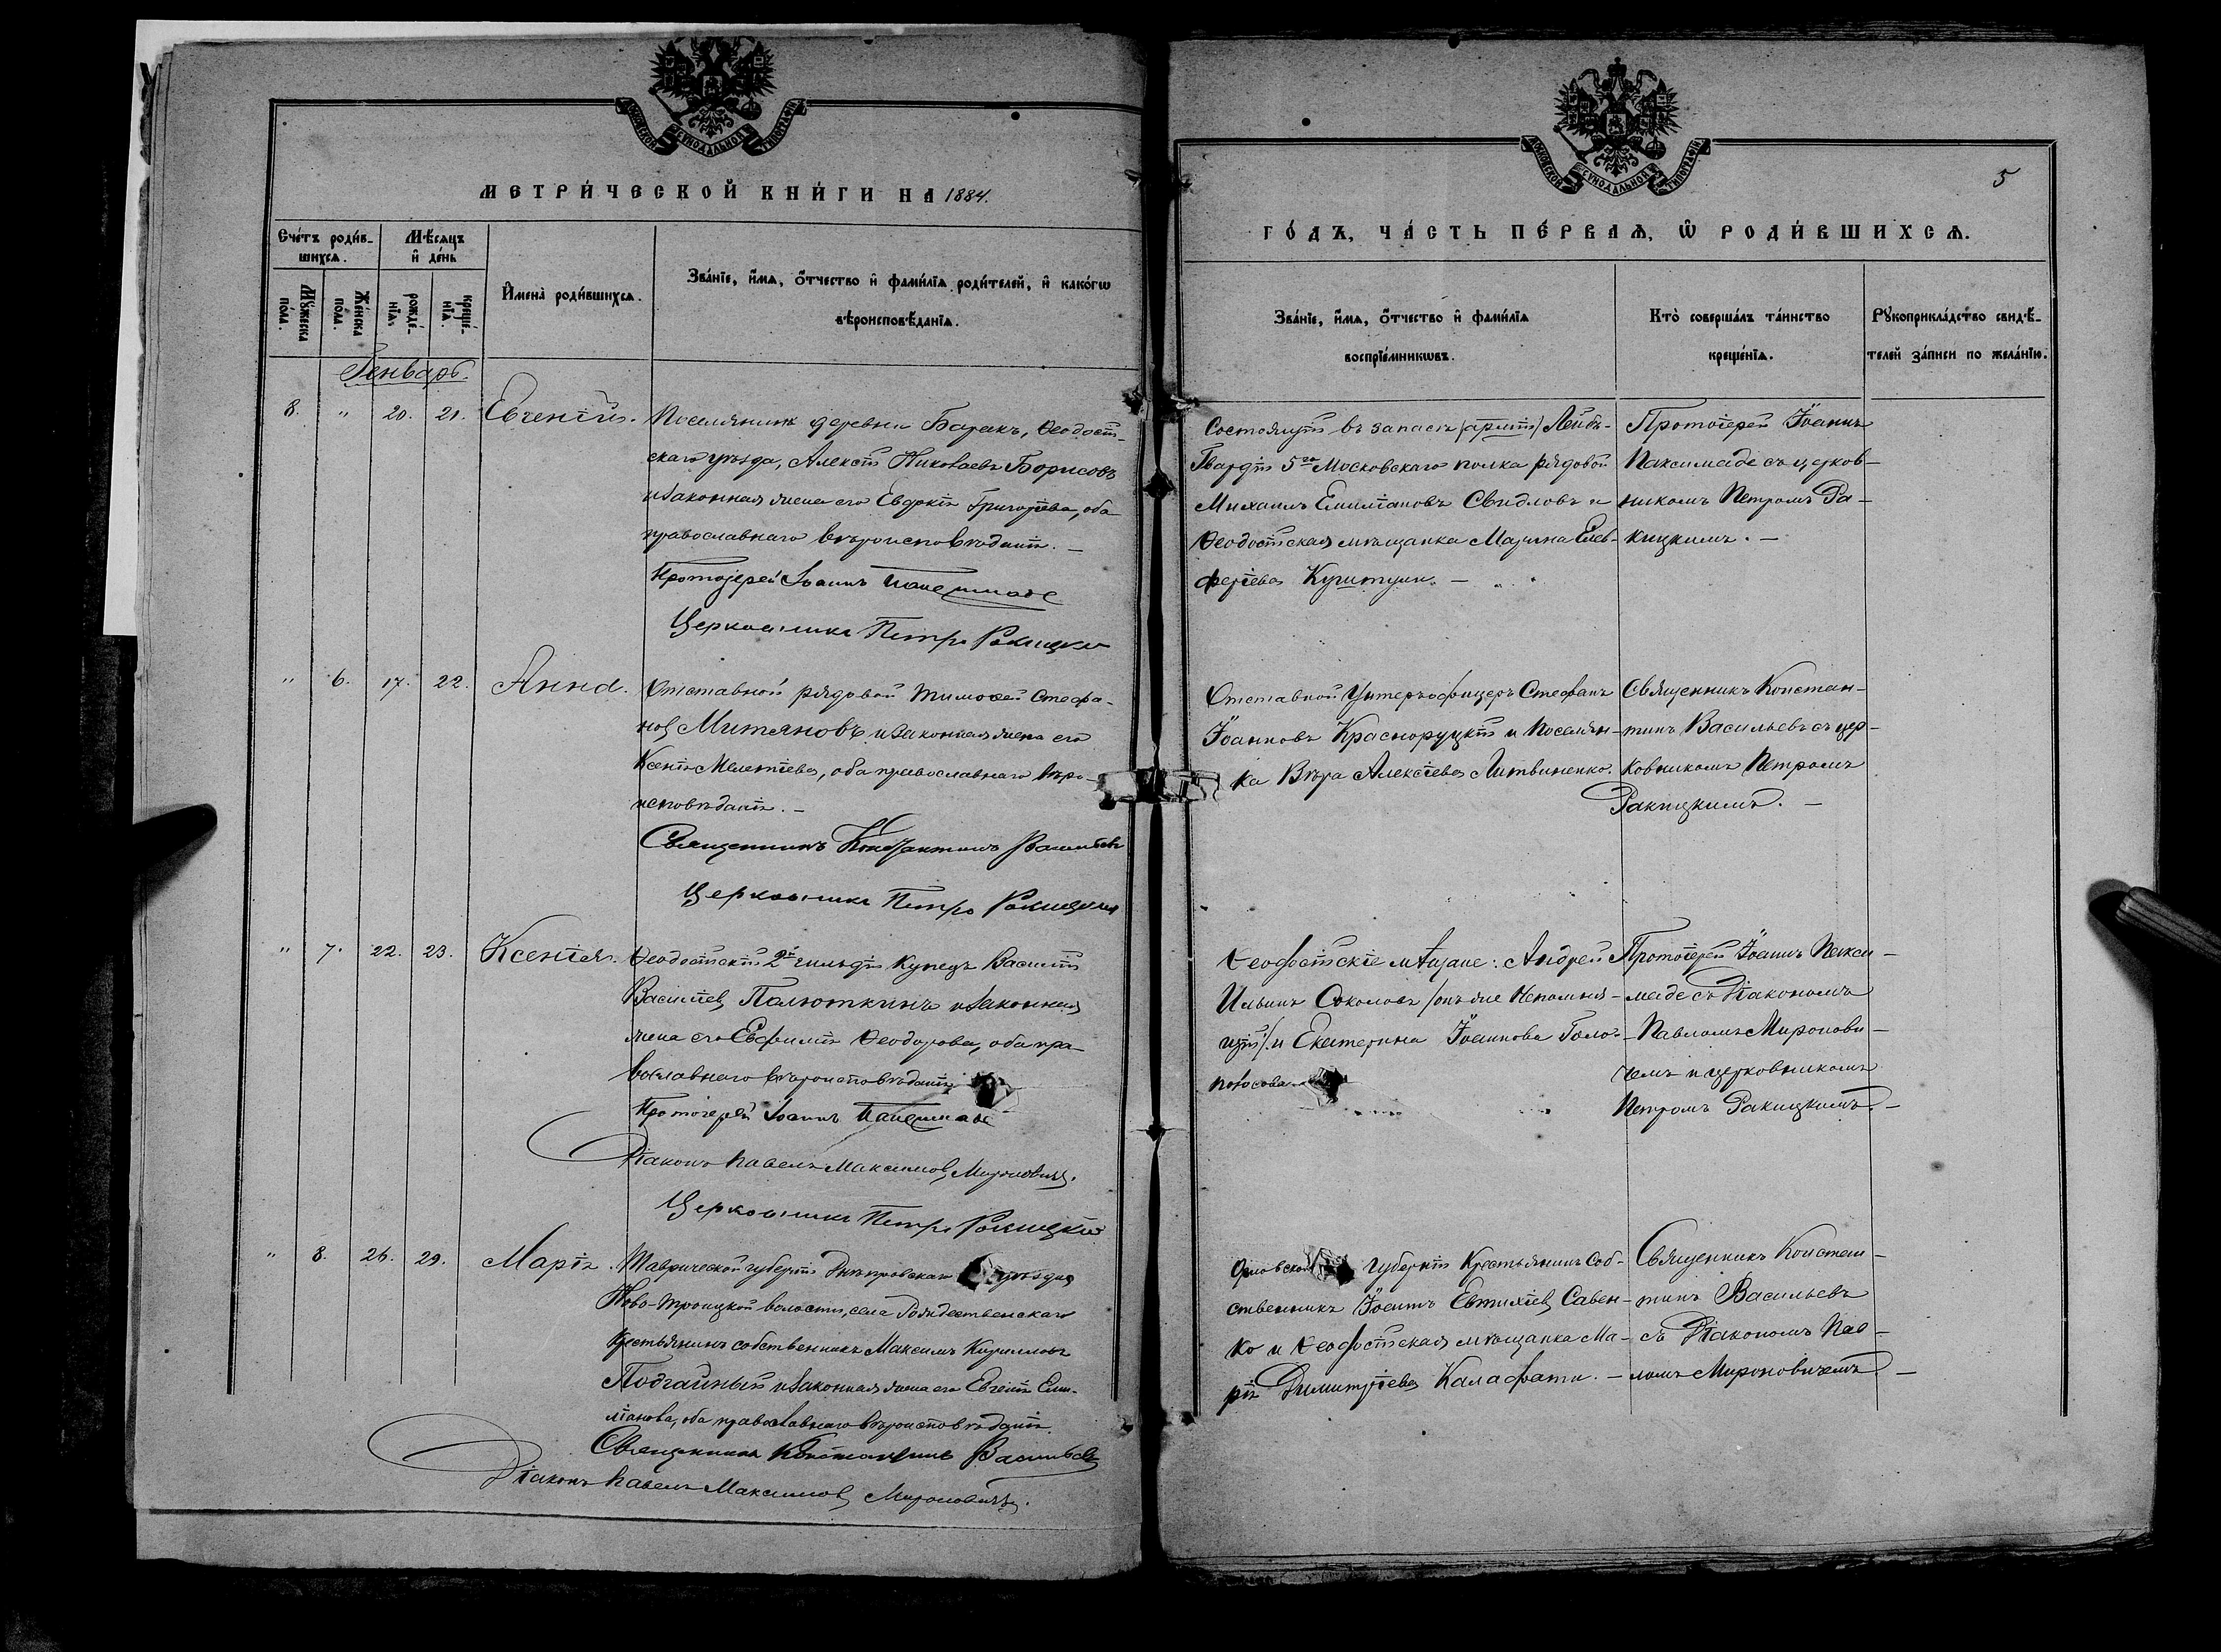 МОСКОВСКОЙ СѴНОДАЛЬНОЙ ТИПОГРАФІИ
МЕТРИ́ЧЕСКОЙ КНИ́ГИ НА 1884.
Сче́тъ роди́в-
шихсѧ.
Мѣ́сѧцъ
и҆ де́нь
Мꙋ́жеска
по́ла.
Же́нска
по́ла.
рожде́-
нїѧ.
креще́-
нїѧ.
И҆мена̀ роди́вшихсѧ.
Зва́нїе, и҆́мѧ, ѻ҆́тчество и҆ фами́лїѧ роди́телей, и҆ како́гѡ
вѣроисповѣ́данїѧ.
Генварь.
8. " 20. 21. Евгеній.
Поселянинъ деревни Баракъ, Ѳеодосій-
скаго уѣзда, Алексій Николаевъ Борисовъ
и законная жена его Евдокія Григоріева, оба
православнаго вѣроисповѣданія. —
Протоіерей Іоаннъ Паксимаде
Церковникъ Петръ Ракицкій
" 6. 17. 22. Анна.
Отставной рядовой Тимоѳей Стефа-
новъ Митяновъ и законная жена его
Ксенія Мелетіева, оба православнаго вѣро-
исповѣданія. —
Священникъ Константинъ Васильевъ
Церковникъ Петръ Ракицкій
" 7. 22. 23. Ксенія.
Ѳеодосійскій 2й гильдіи Купецъ Василій
Василіевъ Палюткинъ и законная
жена его Евфимія Ѳеодорова, оба пра-
вославнаго вѣроисповѣданія
Протоіерей Іоаннъ Паксимаде
Діаконъ Павелъ Максимовъ Мироновичъ.
Церковникъ Петръ Ракицкій
" 8. 26. 29. Марія.
Таврической губерніи Днѣпровскаго уѣзда
Ново-Троицкой волости, села Рождественскаго
Крестьянинъ собственникъ Максимъ Кирилловъ
Подгайный и законная жена его Евгенія Еми-
ліанова, оба православнаго вѣроисповѣданія.
Священникъ Константинъ Васильевъ
Діаконъ Павелъ Максимовъ Мироновичъ.
МОСКОВСКОЙ СѴНОДАЛЬНОЙ ТИПОГРАФІИ
5
ГО́ДЪ, ЧА́СТЬ ПЕ́РВАѦ, Ѡ РОДИ́ВШИХСѦ.
Зва́нїе, и҆́мѧ, ѻ҆́тчество и҆ фами́лїѧ
воспрїе́мникѡвъ.
Кто̀ соверша́лъ та́инство
креще́нїѧ.
Рꙋкоприкла́дство свидѣ́-
телей за́писи по жела́нїю.
Состоящій въ запасѣ (арміи) Лейбъ-
Гвардіи 5го Московскаго полка рядовой
Михаилъ Емиліановъ Свидловъ и
Ѳеодосійская мѣщанка Марина Елев-
феріева
Протоіерей Іоаннъ
Паксимаде съ церков-
никомъ Петромъ Ра-
кицкимъ. —
Отставной Унтеръ-офицеръ Стефанъ
Іоанновъ Красноруцкій и Поселян-
ка Вѣра Алексіева Литвиненко.
Священникъ Констан-
тинъ Васильевъ съ цер-
ковникомъ Петромъ
Ракицкимъ. —
Ѳеодосійскіе мѣщане: Андрей
Ильинъ Соколовъ (онъ же Непомня-
щій) и Екатерина Іоаннова Голо-
Протоіерей Іоаннъ Пакси-
маде съ Діакономъ
Павломъ Миронови-
чемъ и церковникомъ
Петромъ Ракицкимъ. —
Орловской губерніи Крестьянинъ Соб-
ственникъ Іоаннъ Евтихіевъ Савен-
ко и Ѳеодосійская мѣщанка Ма-
рія Димитріева Калафати. —
Священникъ Констан-
тинъ Васильевъ
съ Діакономъ Пав-
ломъ Мироновичемъ. —